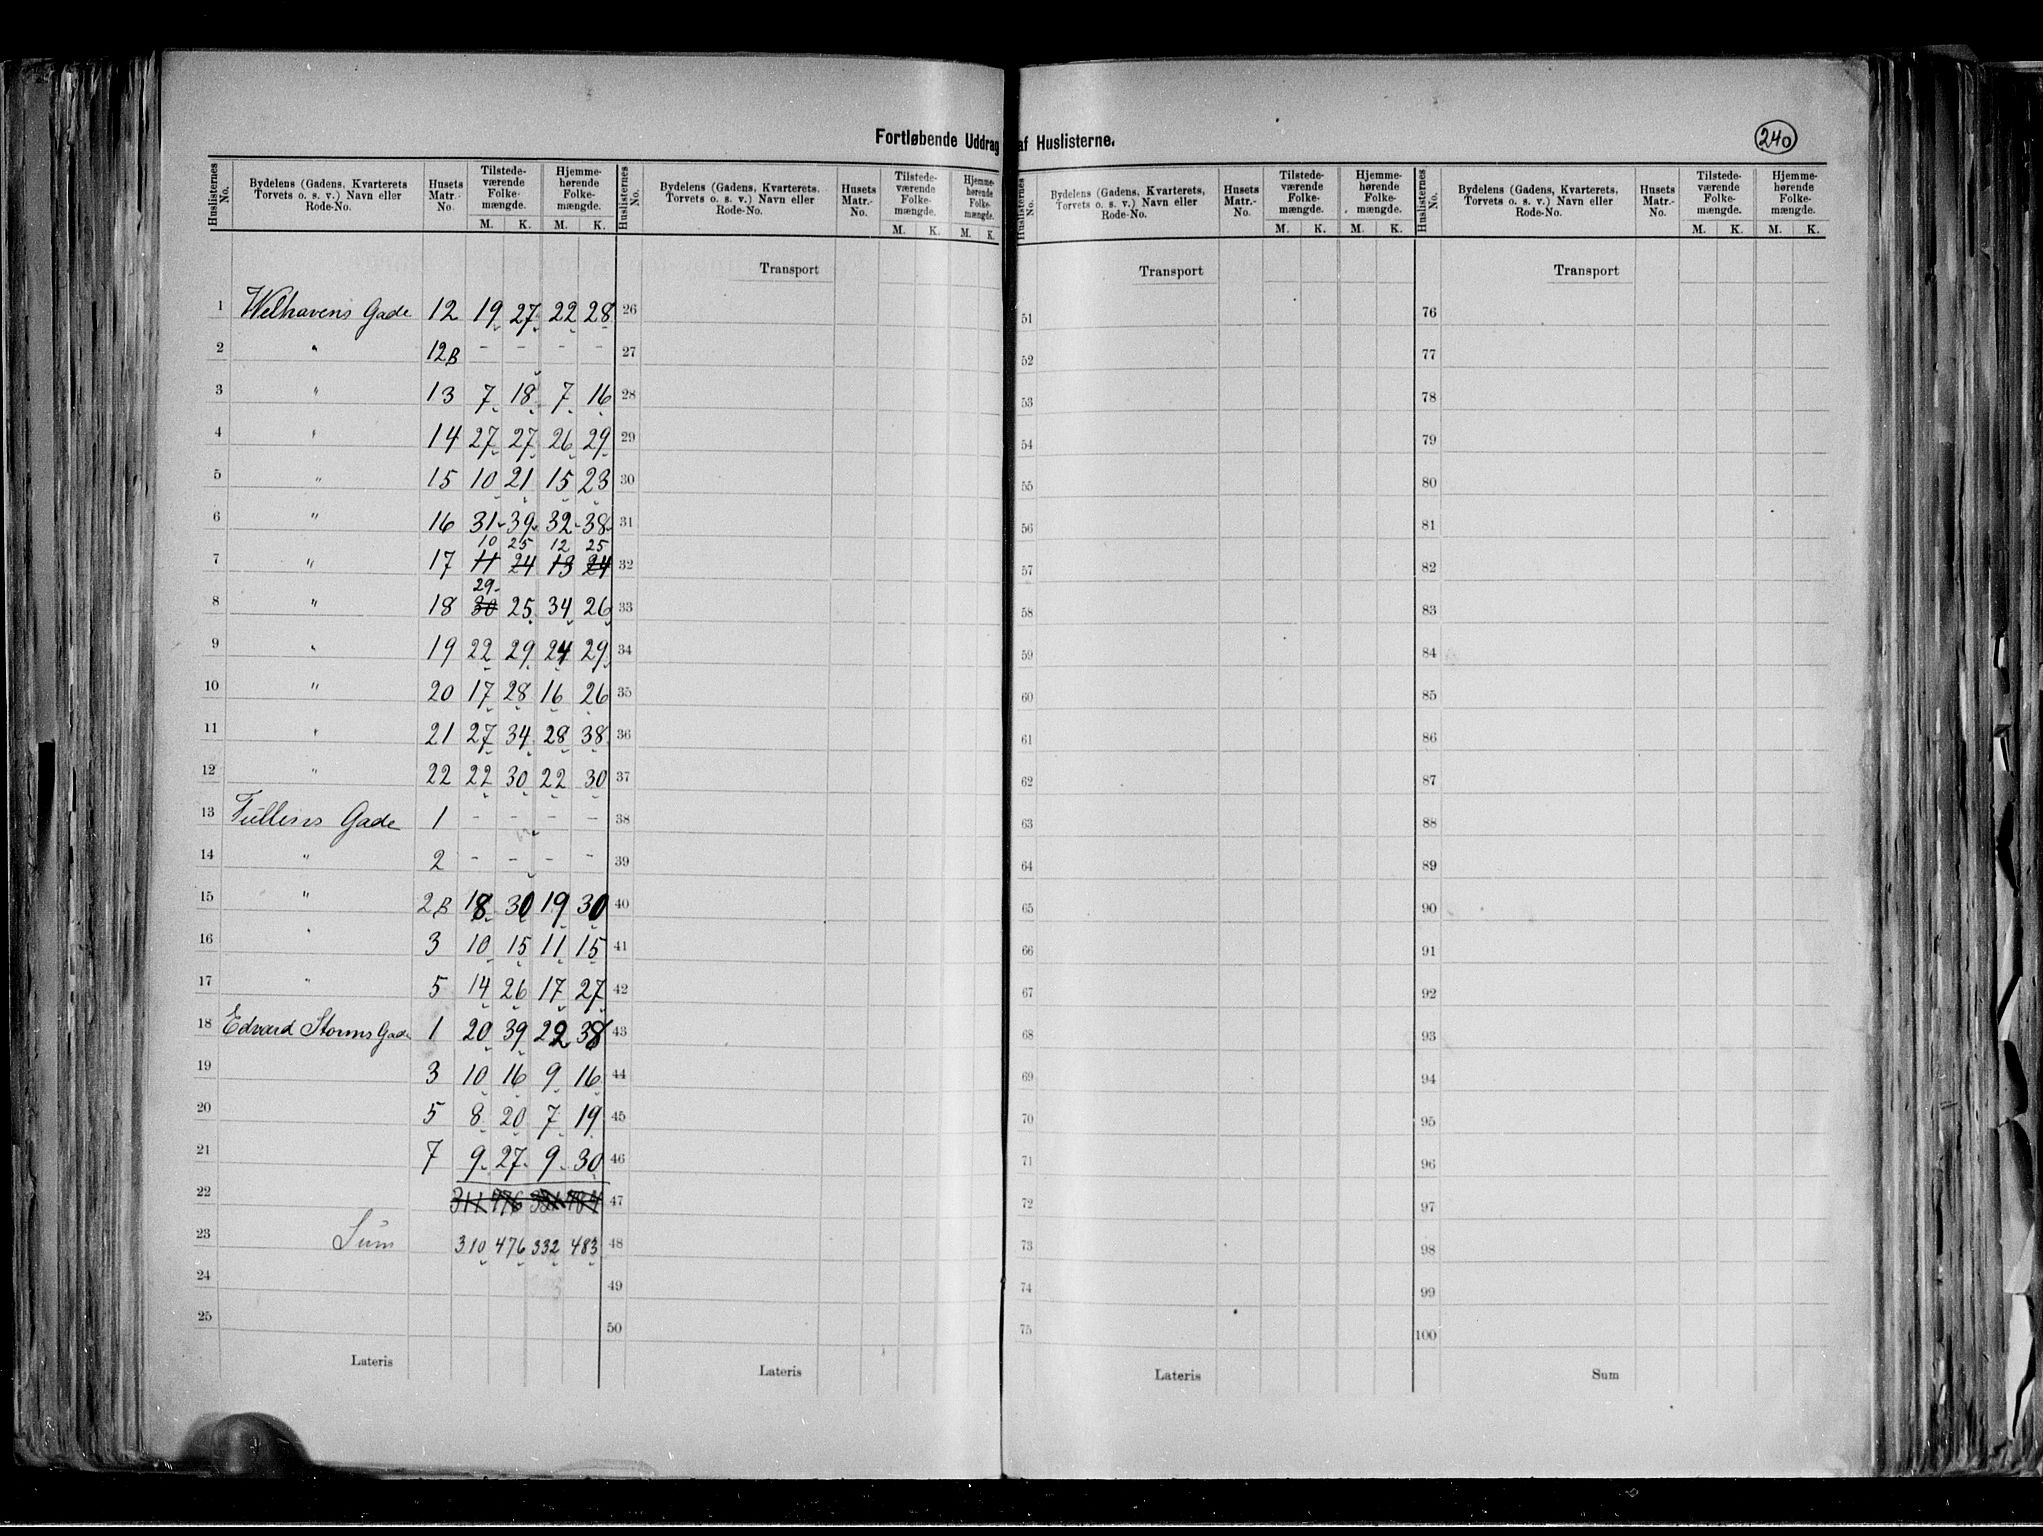 Fortløbende Uddrag af Huslisterne.
240
Huslisternes No. Bydelens (Gadens, Kvarterets Torvets o. s. v.) Navn eller Rode-No. Husets Matr.-No. Tilstedeværende Folkemængde. M. K. Hjemmehørende Folkemængde. M. K.
Huslisternes No. Bydelens (Gadens, Kvarterets, Torvets o. s. v.) Navn eller Rode-No. Husets Matr.-No. Tilstedeværende Folkemængde. M. K. Hjemmehørende Folkemængde. M. K.
Huslisternes No. Bydelens (Gadens, Kvarterets, Torvets o. s. v.) Navn eller Rode-No. Husets Matr.-No. Tilstedeværende Folkemængde. M. K. Hjemmehørende Folkemængde. M. K.
Huslisternes No. Bydelens (Gadens, Kvarterets, Torvets o. s. v.) Navn eller Rode-No. Husets Matr.-No. Tilstedeværende Folkemængde. M. K. Hjemmehørende Folkemængde. M. K.
Transport Transport Transport
1 Welhavens Gade 12 19 27 22 28 26 51 76
2 " 12B - - - - 27 52 77
3 " 13 7 18 7 16 28 53 78
4 " 14 27 27 26 29 29 54 79
5 " 15 10 21 15 23 30 55 80
6 " 16 31 39 32 38 31 56 81
10 25 12 25
7 " 17 11 24 13 24 32 57 82
29
8 " 18 30 25 34 26 33 58 83
9 " 19 22 29 24 29 34 59 84
10 " 20 17 28 16 26 35 60 85
11 " 21 27 34 28 38 36 61 86
12 " 22 22 30 22 30 37 62 87
13 Tullins Gade 1 - - - - 38 63 88
14 " 2 - - - - 39 64 89
15 " 2B 18 30 19 30 40 65 90
16 " 3 10 15 11 15 41 66 91
17 " 5 14 26 17 27 42 67 92
18 Edvard Storms Gade 1 20 39 22 38 43 68 93
19 3 10 16 9 16 44 69 94
20 5 8 20 7 19 45 70 95
21 7 9 27 9 30 46 71 96
22 311 476 47 72 97
23 Sum 310 476 332 483 48 73 98
24 49 74 99
25 50 75 100
Lateris Lateris Lateris Sum